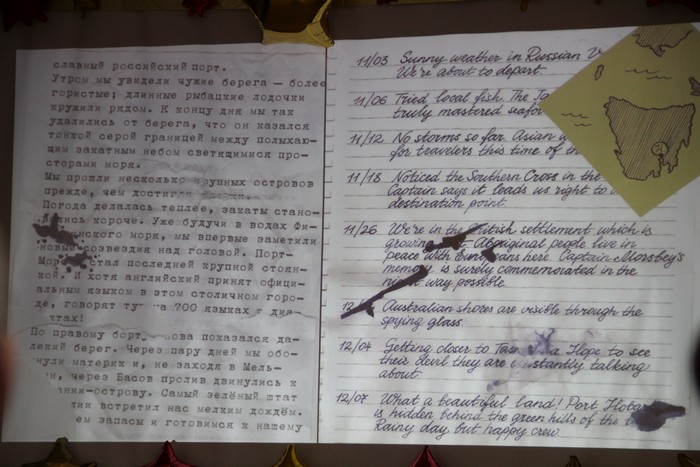 славный российский порт.
Утром мы увидели чужие берега — более
гористые; длинные рыбацкие лодочки
кружили рядом. К концу дня мы так
удалились от берега, что он казался
тонкой серой границей между полыхаю-
щим закатным небом светящимися про-
сторами моря.
Мы прошли несколько крупных островов
прежде, чем достигли
Погода делалась теплее, закаты стано-
вились короче. Уже будучи в водах Фи-
ского моря, мы впервые заметили
новые созвездия над головой. Порт-
Мор стал последней крупной стоян-
кой. И хотя английский принят офици-
альным языком в этом столичном горо-
де, говорят тут на 700 языках и диа-
чтах!
По правому борту снова показался да-
лекий берег. Через пару дней мы обо-
нули материк и, не заходя в Мель-
н, через Басов пролив двинулись к
нии-острову. Самый зелёный штат
лии встретил нас мелким дождём.
ем запасы и готовимся к нашему
11/03 Sunny weather in Russian V
We're about to depart.
11/06 Tried local fish. The Ja
truly mastered seafo
11/12 No storms so far. Asian w
for travelers this time of th
11/18 Noticed the Southern Cross in the
Captain says it leads us right to
destination point.
11/26 We're in the British settlement which is
growing Aboriginal people live in
peace with Europeans here. Captain Moresby's
memory is surely commemorated in the
right way possible.
12/ Australian shores are visible through the
spying glass.
12/04 Getting closer to Tasmania. Hope to see
their devil they are constantly talking
about.
12/07 What a beautiful land! Port Hobart
is hidden behind the green hills of the
Rainy day but happy crew.